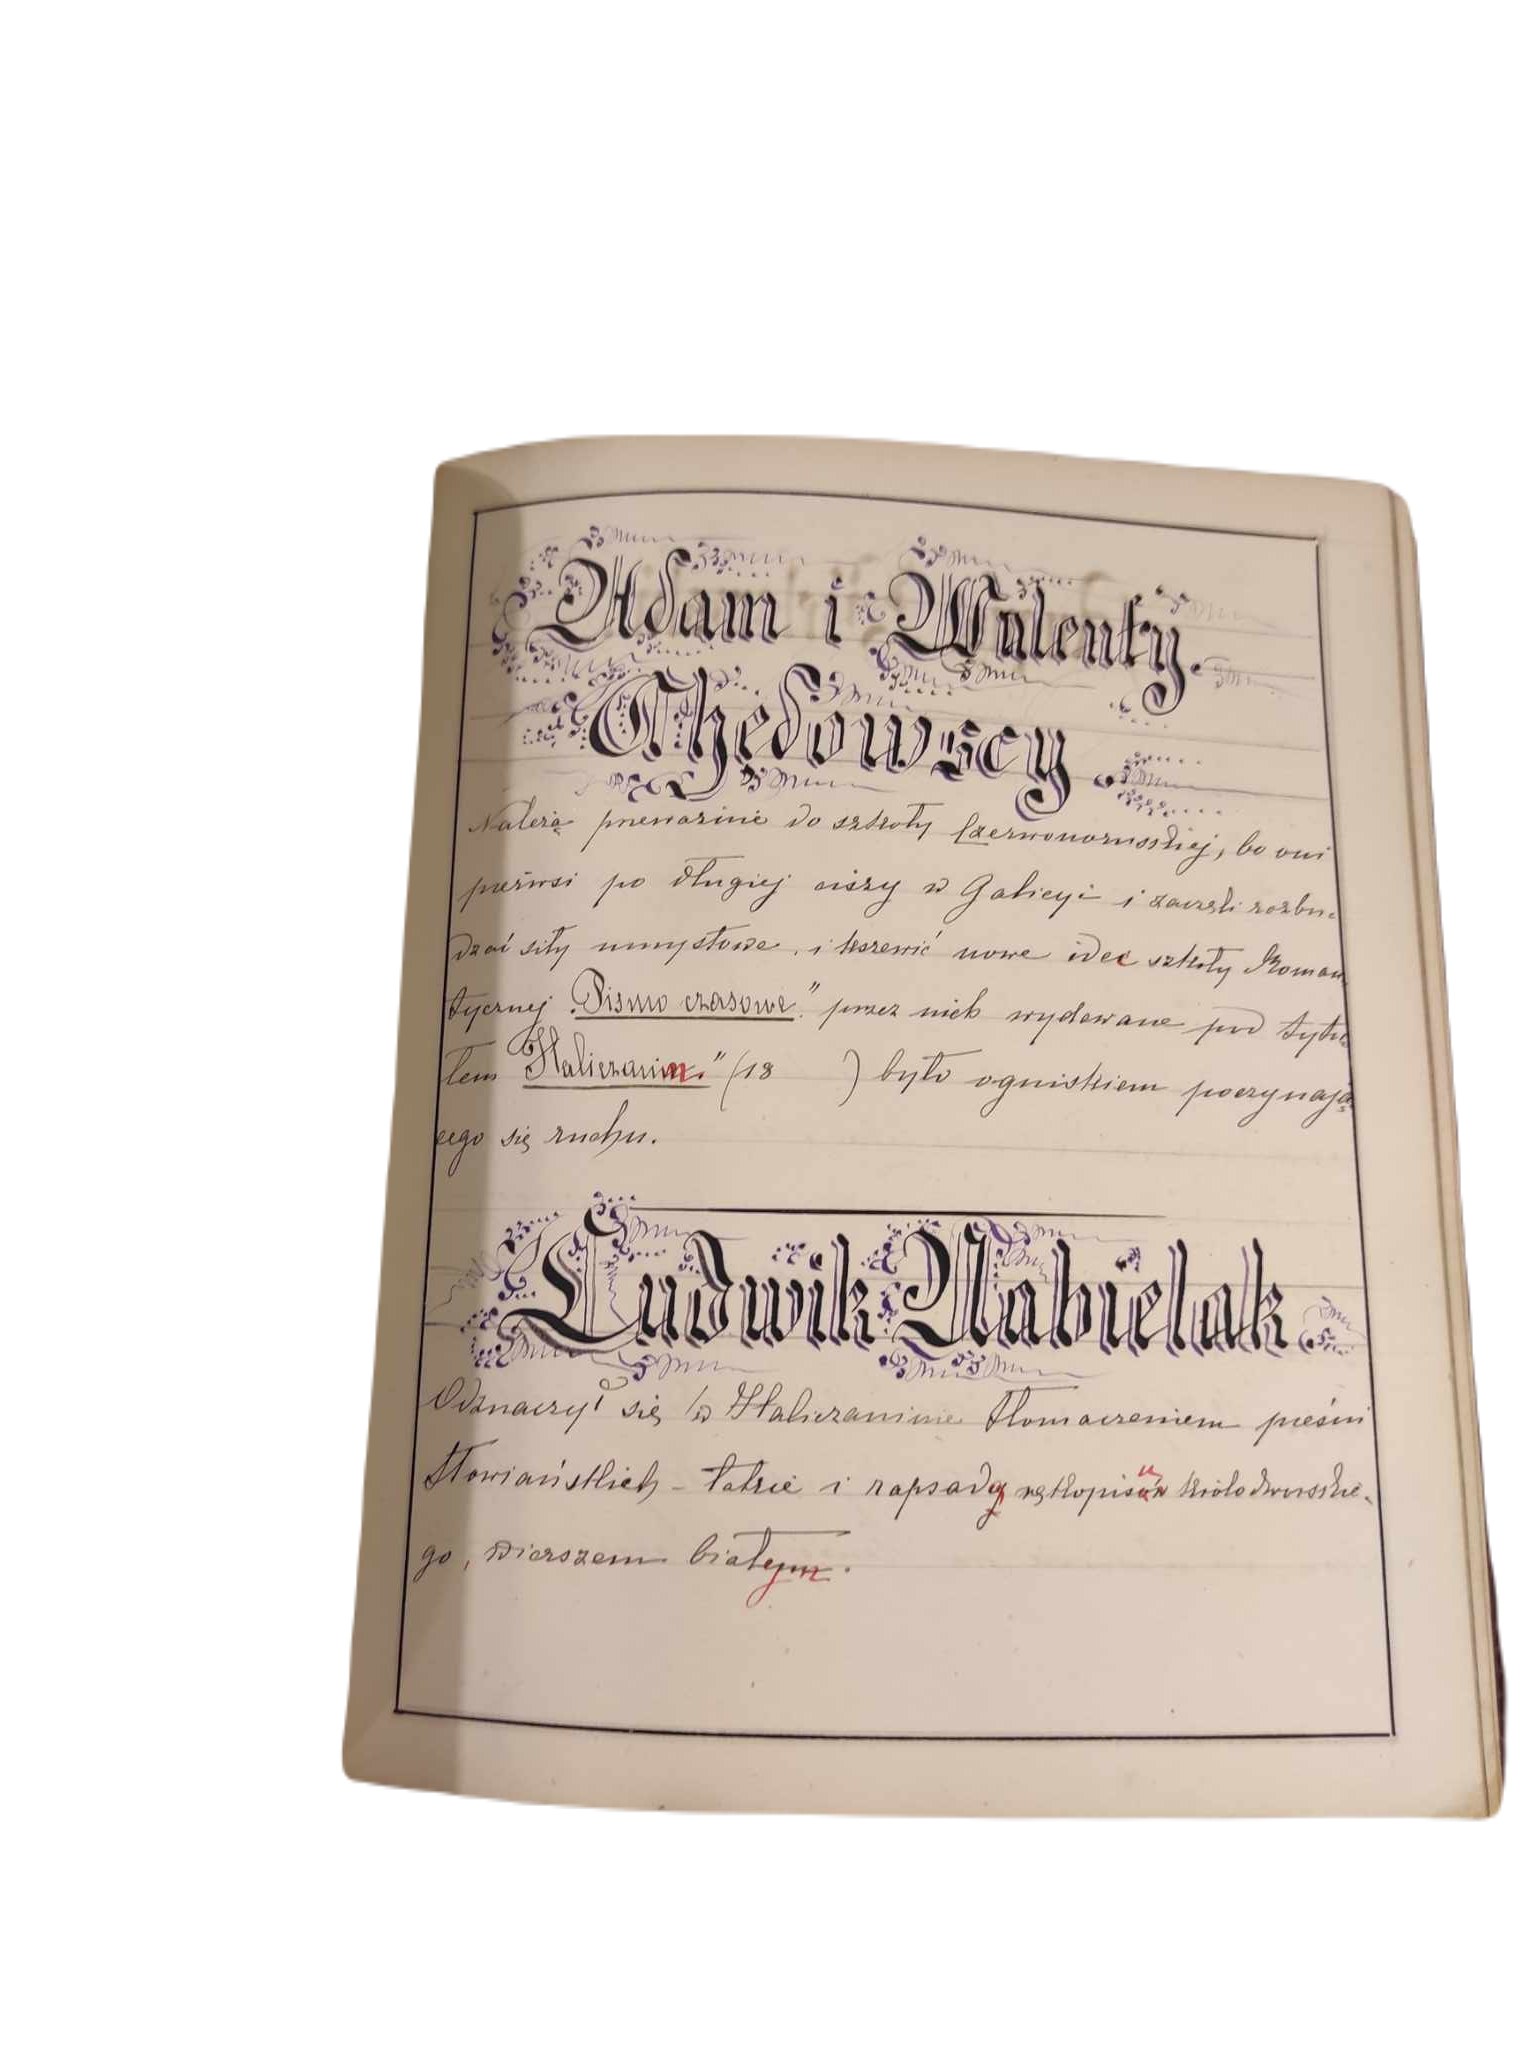 Adam i Walenty.
Chędowscy
Należą przeważnie do szkoły Czerwonoruskiej, bo oni
pierwsi po długiej ciszy w Galicyi i zaczęli rozbu-
dzać siły umysłowe, i krzewić nowe idee szkoły Roman
tycznej. „Pismo czasowe" przez nich wydawane pod tytu-
łem „Haliczanin" (18 ) było ogniskiem poczynają-
cego się ruchu.
Ludwik Nabielak
Odznaczył się w Haliczaninie tłomaczeniem pieśni
Słowiańskich - także i rapsody rękopisu królodworskie-
go, wierszem białym.